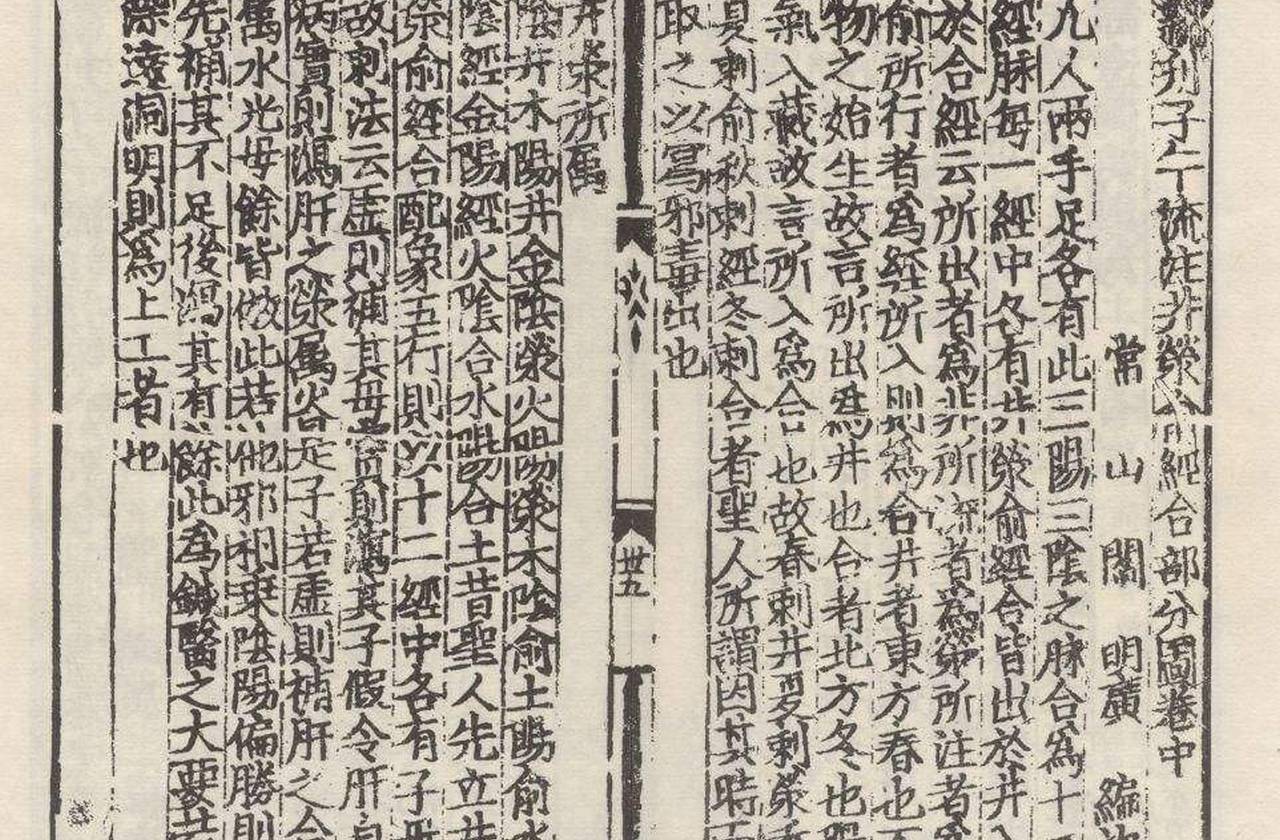 列子午流注井滎俞經合部分圖卷中
常山閻明廣編
凡人兩手足各有此三陽三陰之脉合爲十
經脉每一經中各有井滎俞經合皆出於井入
於合經云所出者爲井所流者爲滎所注者爲
俞所行者爲經所入則爲合井者東方春也万
物之始生故言所出爲井也合者北方冬也陽
氣入藏故言所入爲合也故春刺井夏刺滎季
夏刺俞秋刺經冬刺合者聖人所謂因其時而
取之以寫邪毒出也
卅五
井滎所屬
陰井木陽井金陰滎火陽滎水陰俞土陽俞木
陰經金陽經火陰合水陽合土昔聖人先立井
滎俞經合配象五行則以十二經中各有子母
故刺法云虛則補其母實則瀉其子假令肝自
病實則瀉肝之滎屬火是子若虛則補肝之合
屬水光母餘皆倣此若他邪相乗陰陽偏勝則
先補其不足後瀉其有餘此爲鍼醫之大要若
深達洞明則爲上工者也